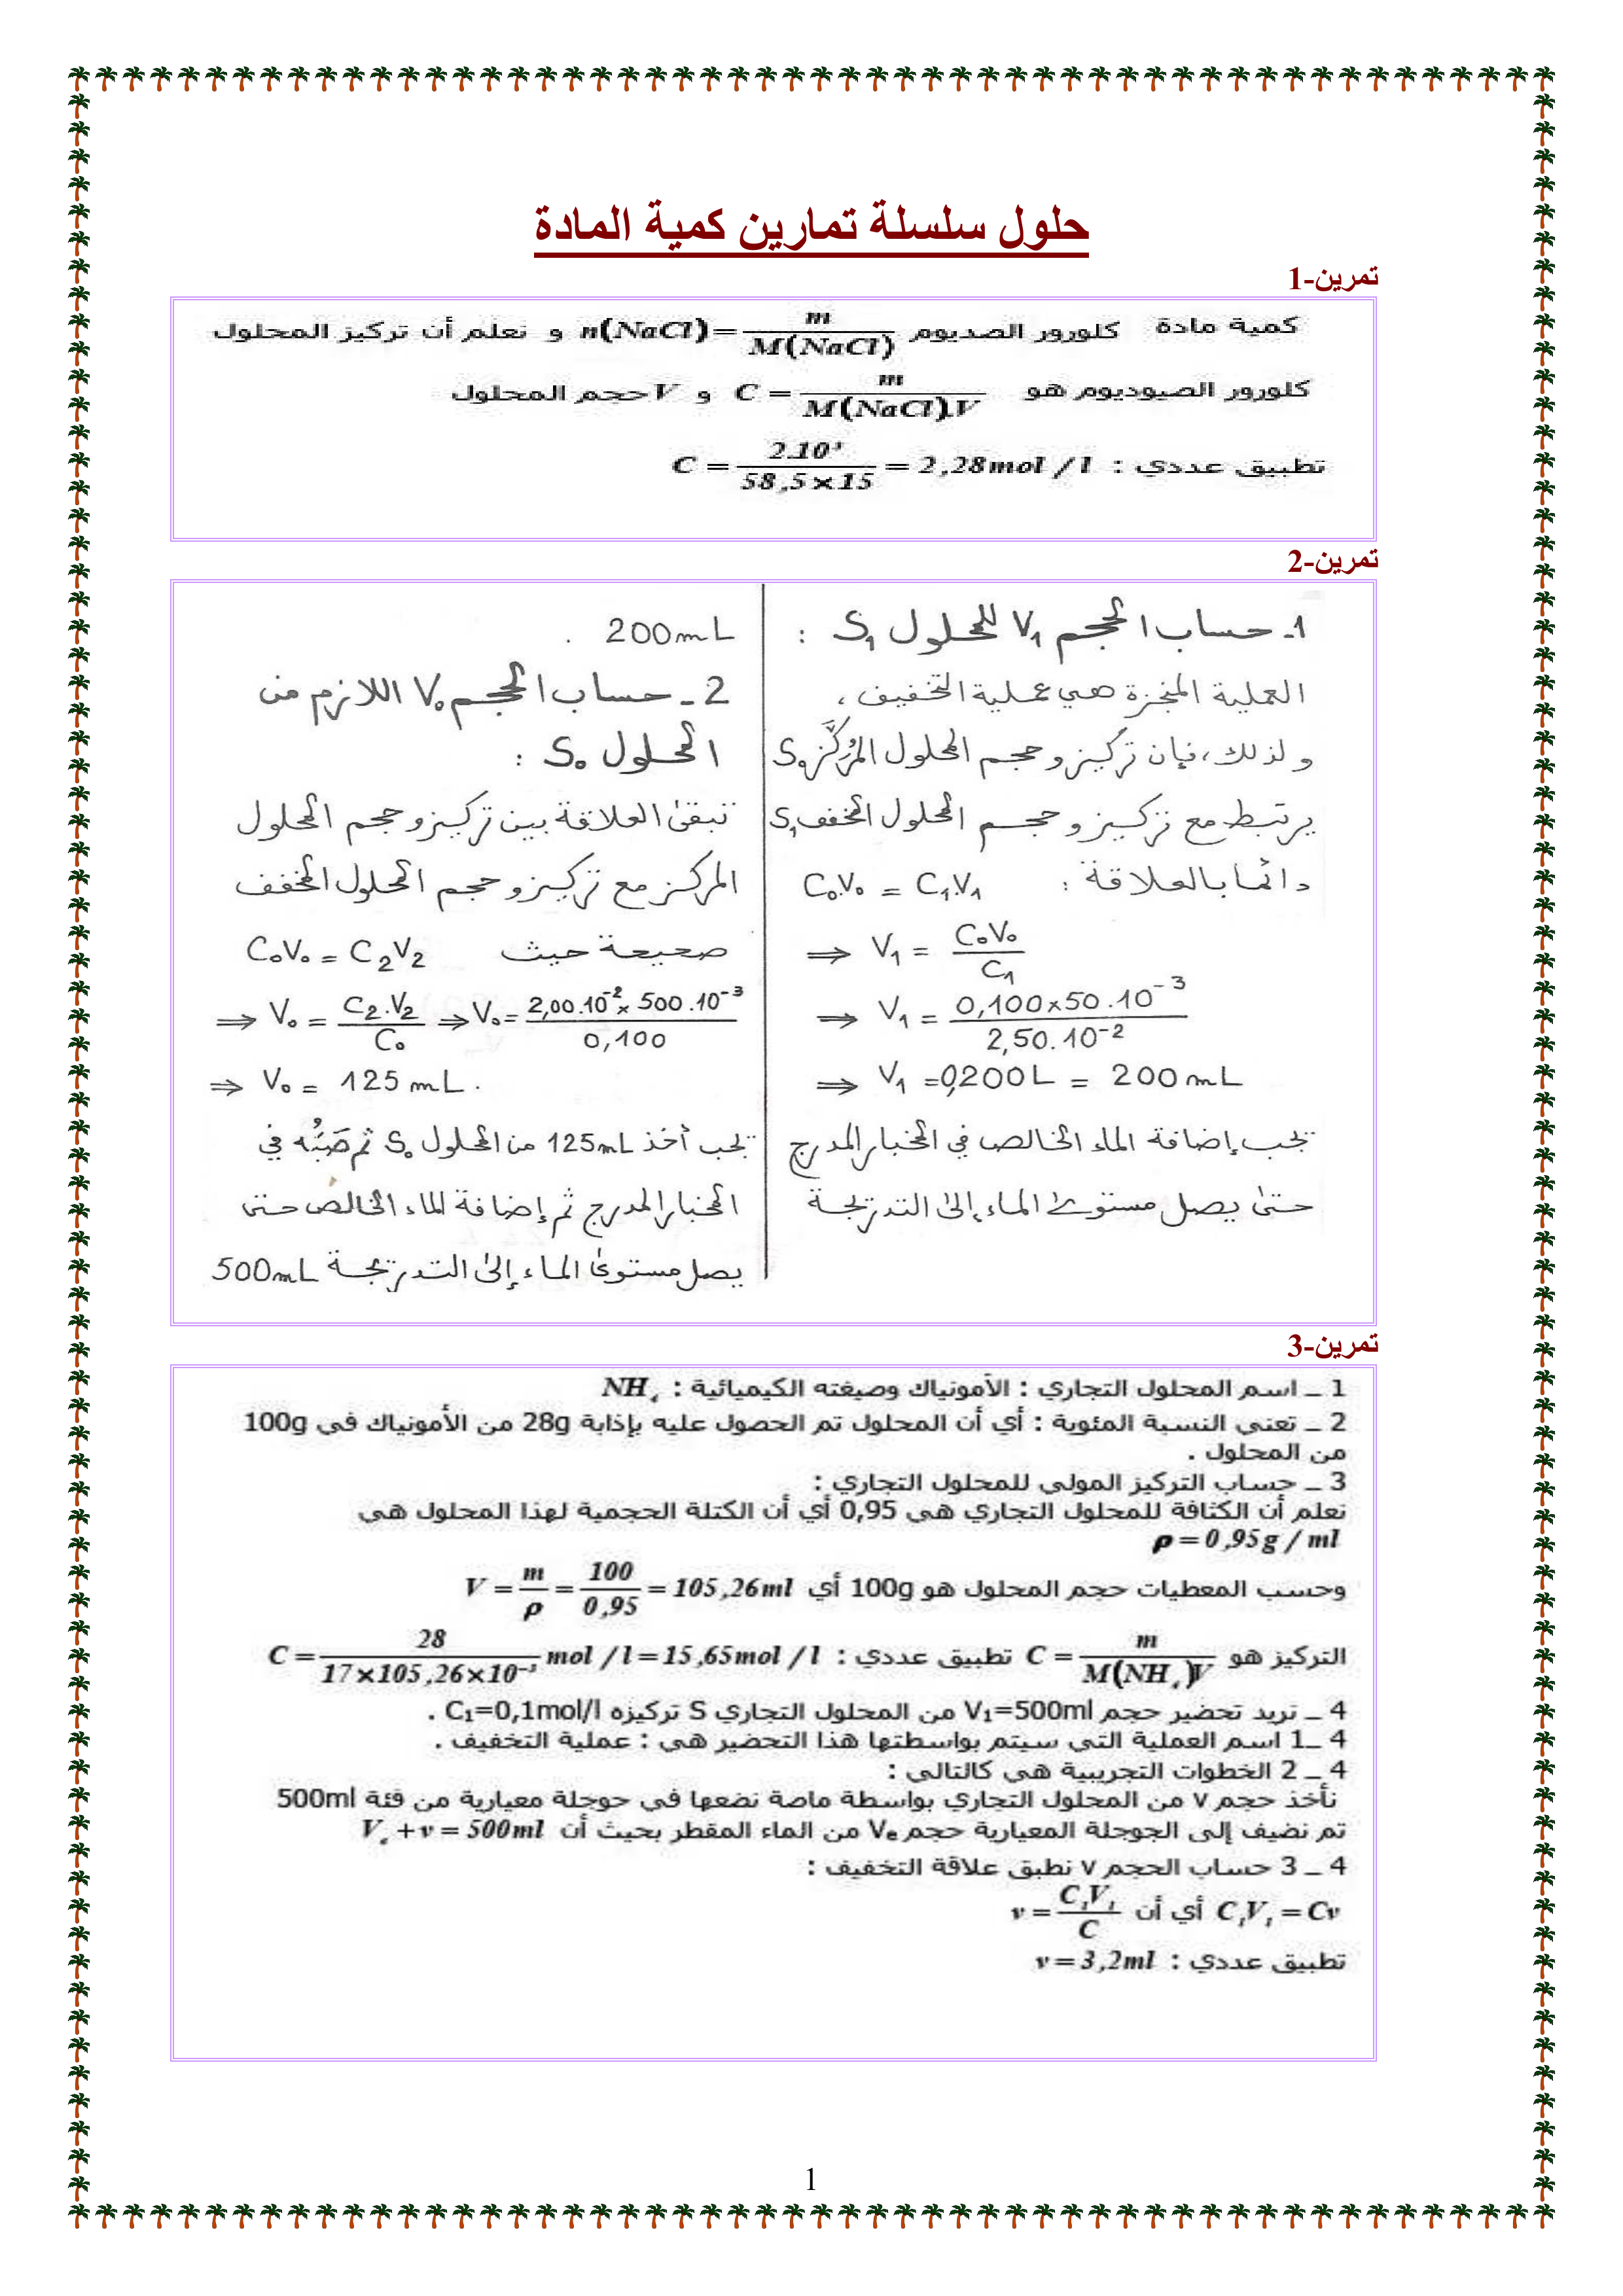 حلول سلسلة تمارين كمية المادة
تمرين-1
كمية مادة كلورور الصديوم n(NaCl)=m/M(NaCl) و نعلم أن تركيز المحلول
كلورور الصيوديوم هو C = m/M(NaCl).V و V حجم المحلول
تطبيق عددي : C = 2.10³/58,5×15 = 2,28mol / l
تمرين-2
1- حساب الحجم V₁ للمحلول S₁ :
العملية المنجزة هي عملية التخفيف ،
ولذلك، فإن تركيز وحجم المحلول المُركَّز S₀
يرتبط مع تركيز وحجم المحلول المخفف S₁
دائما بالعلاقة : C₀V₀ = C₁V₁
⇒ V₁ = C₀V₀/C₁
⇒ V₁ = 0,100×50.10⁻³/2,50.10⁻²
⇒ V₁ =0,200L = 200mL
يجب إضافة الماء الخالص في المخبار المدرج
حتى يصل مستوى الماء إلى التدريجة
200mL .
2 - حساب الحجم V₀ اللازم من
المحلول S₀ :
تبقى العلاقة بين تركيز وحجم المحلول
المركز مع تركيز وحجم المحلول المخفف
صحيحة حيث C₀V₀ = C₂V₂
⇒ V₀ = C₂.V₂/C₀ ⇒ V₀ = 2,00.10⁻²×500.10⁻³/0,100
⇒ V₀ = 125 mL .
يجب أخذ 125mL من المحلول S₀ ثم صَبُّه في
المخبار المدرج ثم إضافة الماء الخالص حتى
يصل مستوى الماء إلى التدريجة 500mL
تمرين-3
1 _ اسم المحلول التجاري : الأمونياك وصيغته الكيميائية : NH
2 _ تعني النسبة المئوية : أي أن المحلول تم الحصول عليه بإذابة 28g من الأمونياك في 100g
من المحلول .
3 _ حساب التركيز المولي للمحلول التجاري :
نعلم أن الكثافة للمحلول التجاري هي 0,95 أي أن الكتلة الحجمية لهذا المحلول هي
ρ = 0,95g / ml
وحسب المعطيات حجم المحلول هو 100g أي V = m/ρ = 100/0,95 = 105,26ml
التركيز هو C = m/M(NH )V تطبيق عددي : C = 28/17×105,26×10⁻³ mol / l=15,65mol / l
4 _ نريد تحضير حجم V₁=500ml من المحلول التجاري S تركيزه C₁=0,1mol/l .
4 _1 اسم العملية التي سيتم بواسطتها هذا التحضير هي : عملية التخفيف .
4 _ 2 الخطوات التجريبية هي كالتالي :
نأخذ حجم v من المحلول التجاري بواسطة ماصة نضعها في حوجلة معيارية من فئة 500ml
تم نضيف إلى الجوجلة المعيارية حجم Ve من الماء المقطر بحيث أن Vₑ +v = 500ml
4 _ 3 حساب الحجم v نطبق علاقة التخفيف :
C₁V₁ = Cv أي أن v = C₁V₁/C
تطبيق عددي : v = 3,2ml
1